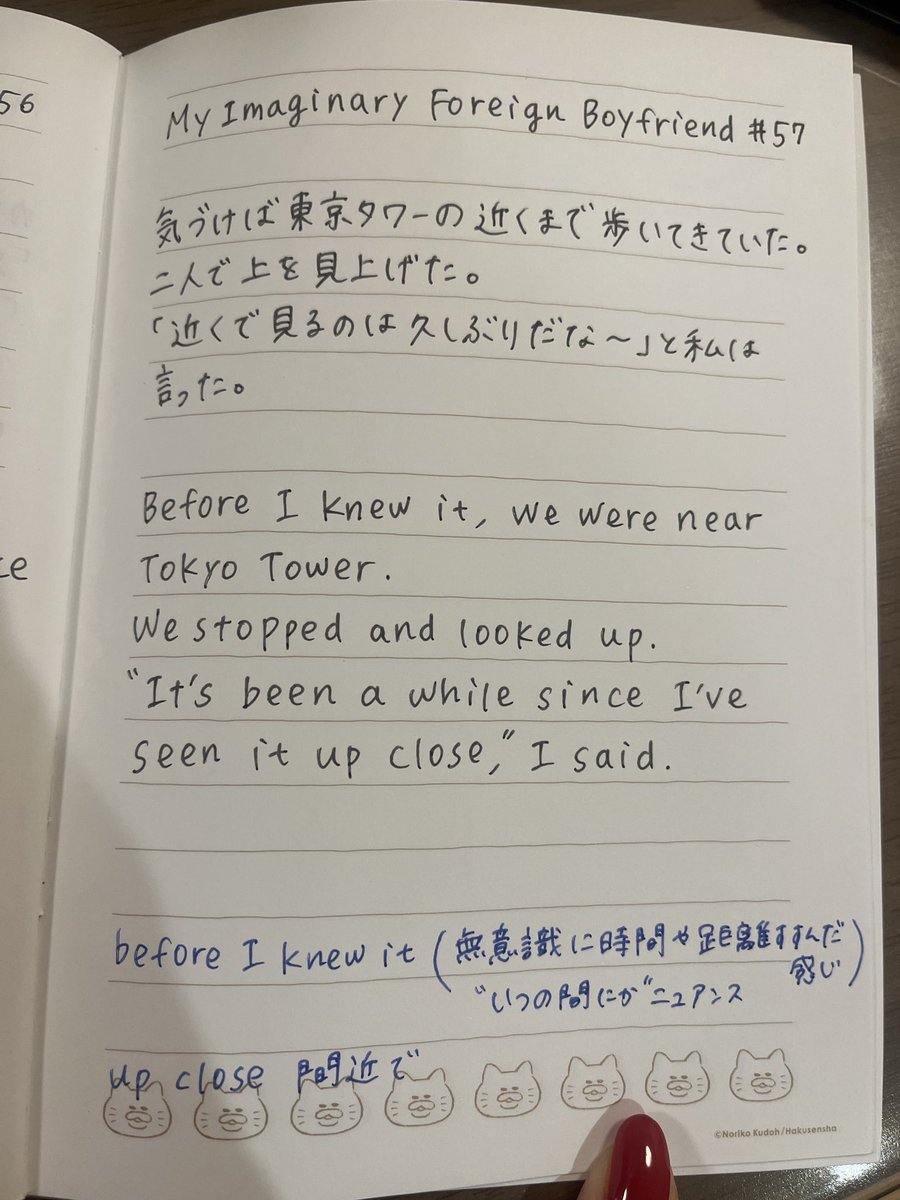 56
My Imaginary Foreign Boyfriend #57
気づけば東京タワーの近くまで歩いてきていた。
二人で上を見上げた。
「近くで見るのは久しぶりだな〜」と私は
言った。
Before I knew it, we were near
Tokyo Tower.
We stopped and looked up.
"It's been a while since I've
seen it up close," I said.
before I knew it (無意識に時間や距離すすんだ
感じ)
"いつの間にか"ニュアンス
up close 間近で
©Noriko Kudoh/Hakusensha